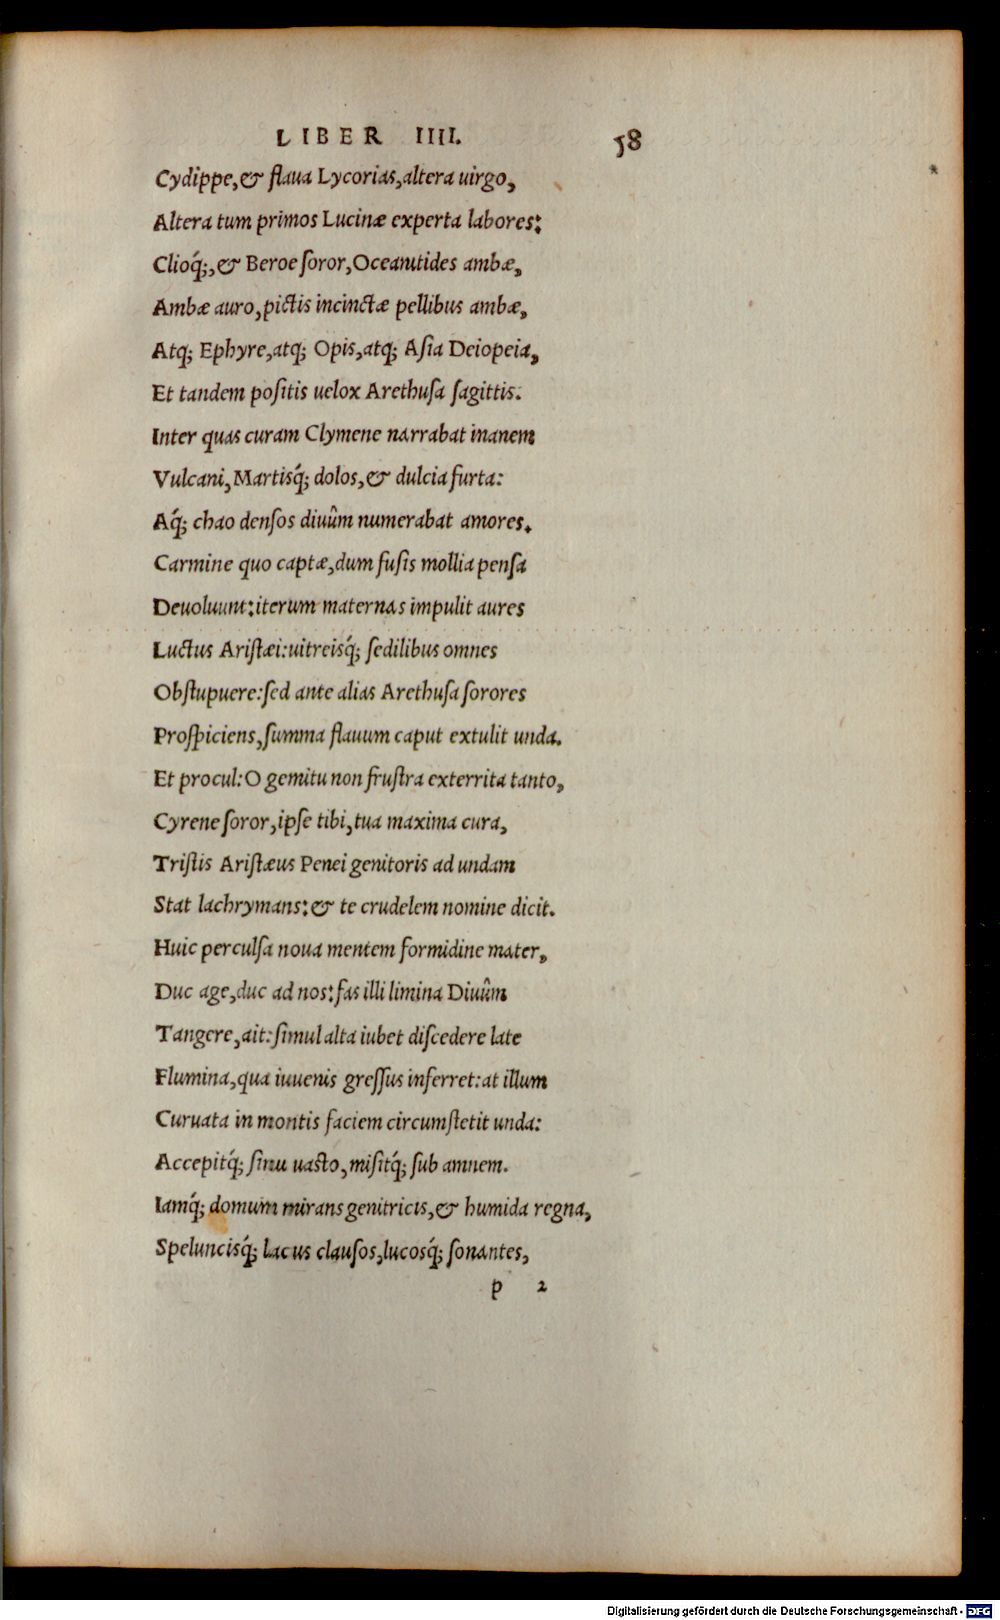 LIBER IIII. 58
Cydippe,& flaua Lycorias,altera uirgo,
Altera tum primos Lucinæ experta labores:
Clioq́;,& Beroe ſoror,Oceanitides ambæ,
Ambæ auro,pictis incinctæ pellibus ambæ,
Atq; Ephyre,atq; Opis,atq; Aſia Deiopeia,
Et tandem poſitis uelox Arethuſa ſagittis.
Inter quas curam Clymene narrabat inanem
Vulcani,Martisq́; dolos,& dulcia furta:
Aq́; chao denſos diuûm numerabat amores.
Carmine quo captæ,dum fuſis mollia penſa
Deuoluunt:iterum maternas impulit aures
Luctus Ariſtæi:uitreisq́; ſedilibus omnes
Obſtupuere:ſed ante alias Arethuſa ſorores
Proſpiciens,ſumma flauum caput extulit unda.
Et procul:O gemitu non fruſtra exterrita tanto,
Cyrene ſoror,ipſe tibi,tua maxima cura,
Triſtis Ariſtæus Penei genitoris ad undam
Stat lachrymans:& te crudelem nomine dicit.
Huic perculſa noua mentem formidine mater,
Duc age,duc ad nos:fas illi limina Diuûm
Tangere,ait:ſimul alta iubet diſcedere late
Flumina,qua iuuenis greſſus inferret:at illum
Curuata in montis faciem circumſtetit unda:
Accepitq́; ſinu uaſto,miſitq́; ſub amnem.
Iamq́; domum mirans genitricis,& humida regna,
Speluncisq́; lacus clauſos,lucosq́; ſonantes,
p 2
Digitalisierung gefördert durch die Deutsche Forschungsgemeinschaft - DFG